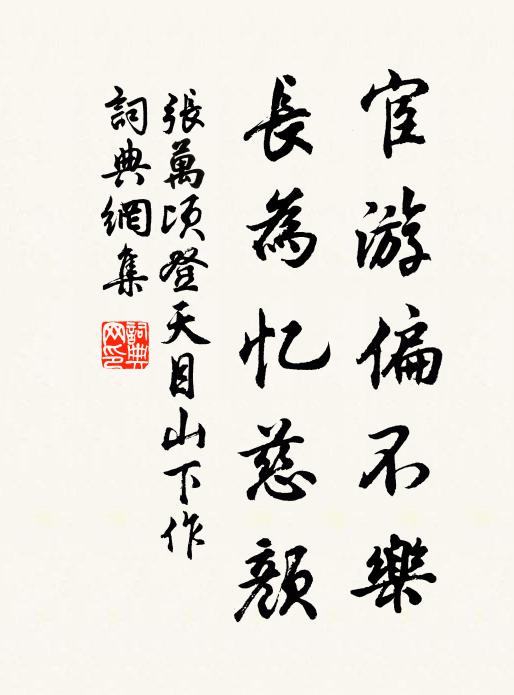 宦游偏不樂
長為忆慈顔
張萬頃登天目山下作
詞典網集
詞典网印